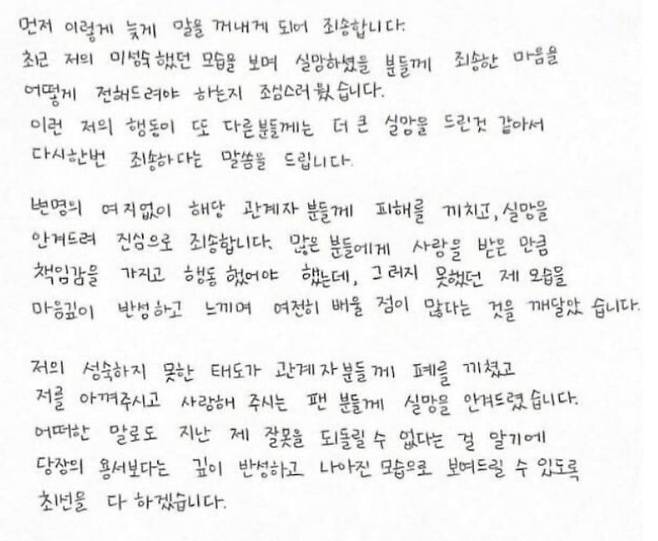 먼저 이렇게 늦게 말을 꺼내게 되어 죄송합니다.
최근 저의 미성숙했던 모습을 보며 실망하셨을 분들께 죄송한 마음을
어떻게 전해드려야 하는지 조심스러웠습니다.
이런 저의 행동이 또 다른분들께는 더 큰 실망을 드린것 같아서
다시한번 죄송하다는 말씀을 드립니다.
변명의 여지없이 해당 관계자 분들께 피해를 끼치고, 실망을
안겨드려 진심으로 죄송합니다. 많은 분들에게 사랑을 받은 만큼
책임감을 가지고 행동 했어야 했는데, 그러지 못했던 제 모습을
마음깊이 반성하고 느끼며 여전히 배울 점이 많다는 것을 깨달았 습니다.
저의 성숙하지 못한 태도가 관계자분들께 폐를 끼쳤고
저를 아껴주시고 사랑해 주시는 팬 분들께 실망을 안겨드렸습니다.
어떠한 말로도 지난 제 잘못을 되돌릴 수 없다는 걸 알기에
당장의 용서보다는 깊이 반성하고 나아진 모습으로 보여드릴 수 있도록
최선을 다 하겠습니다.